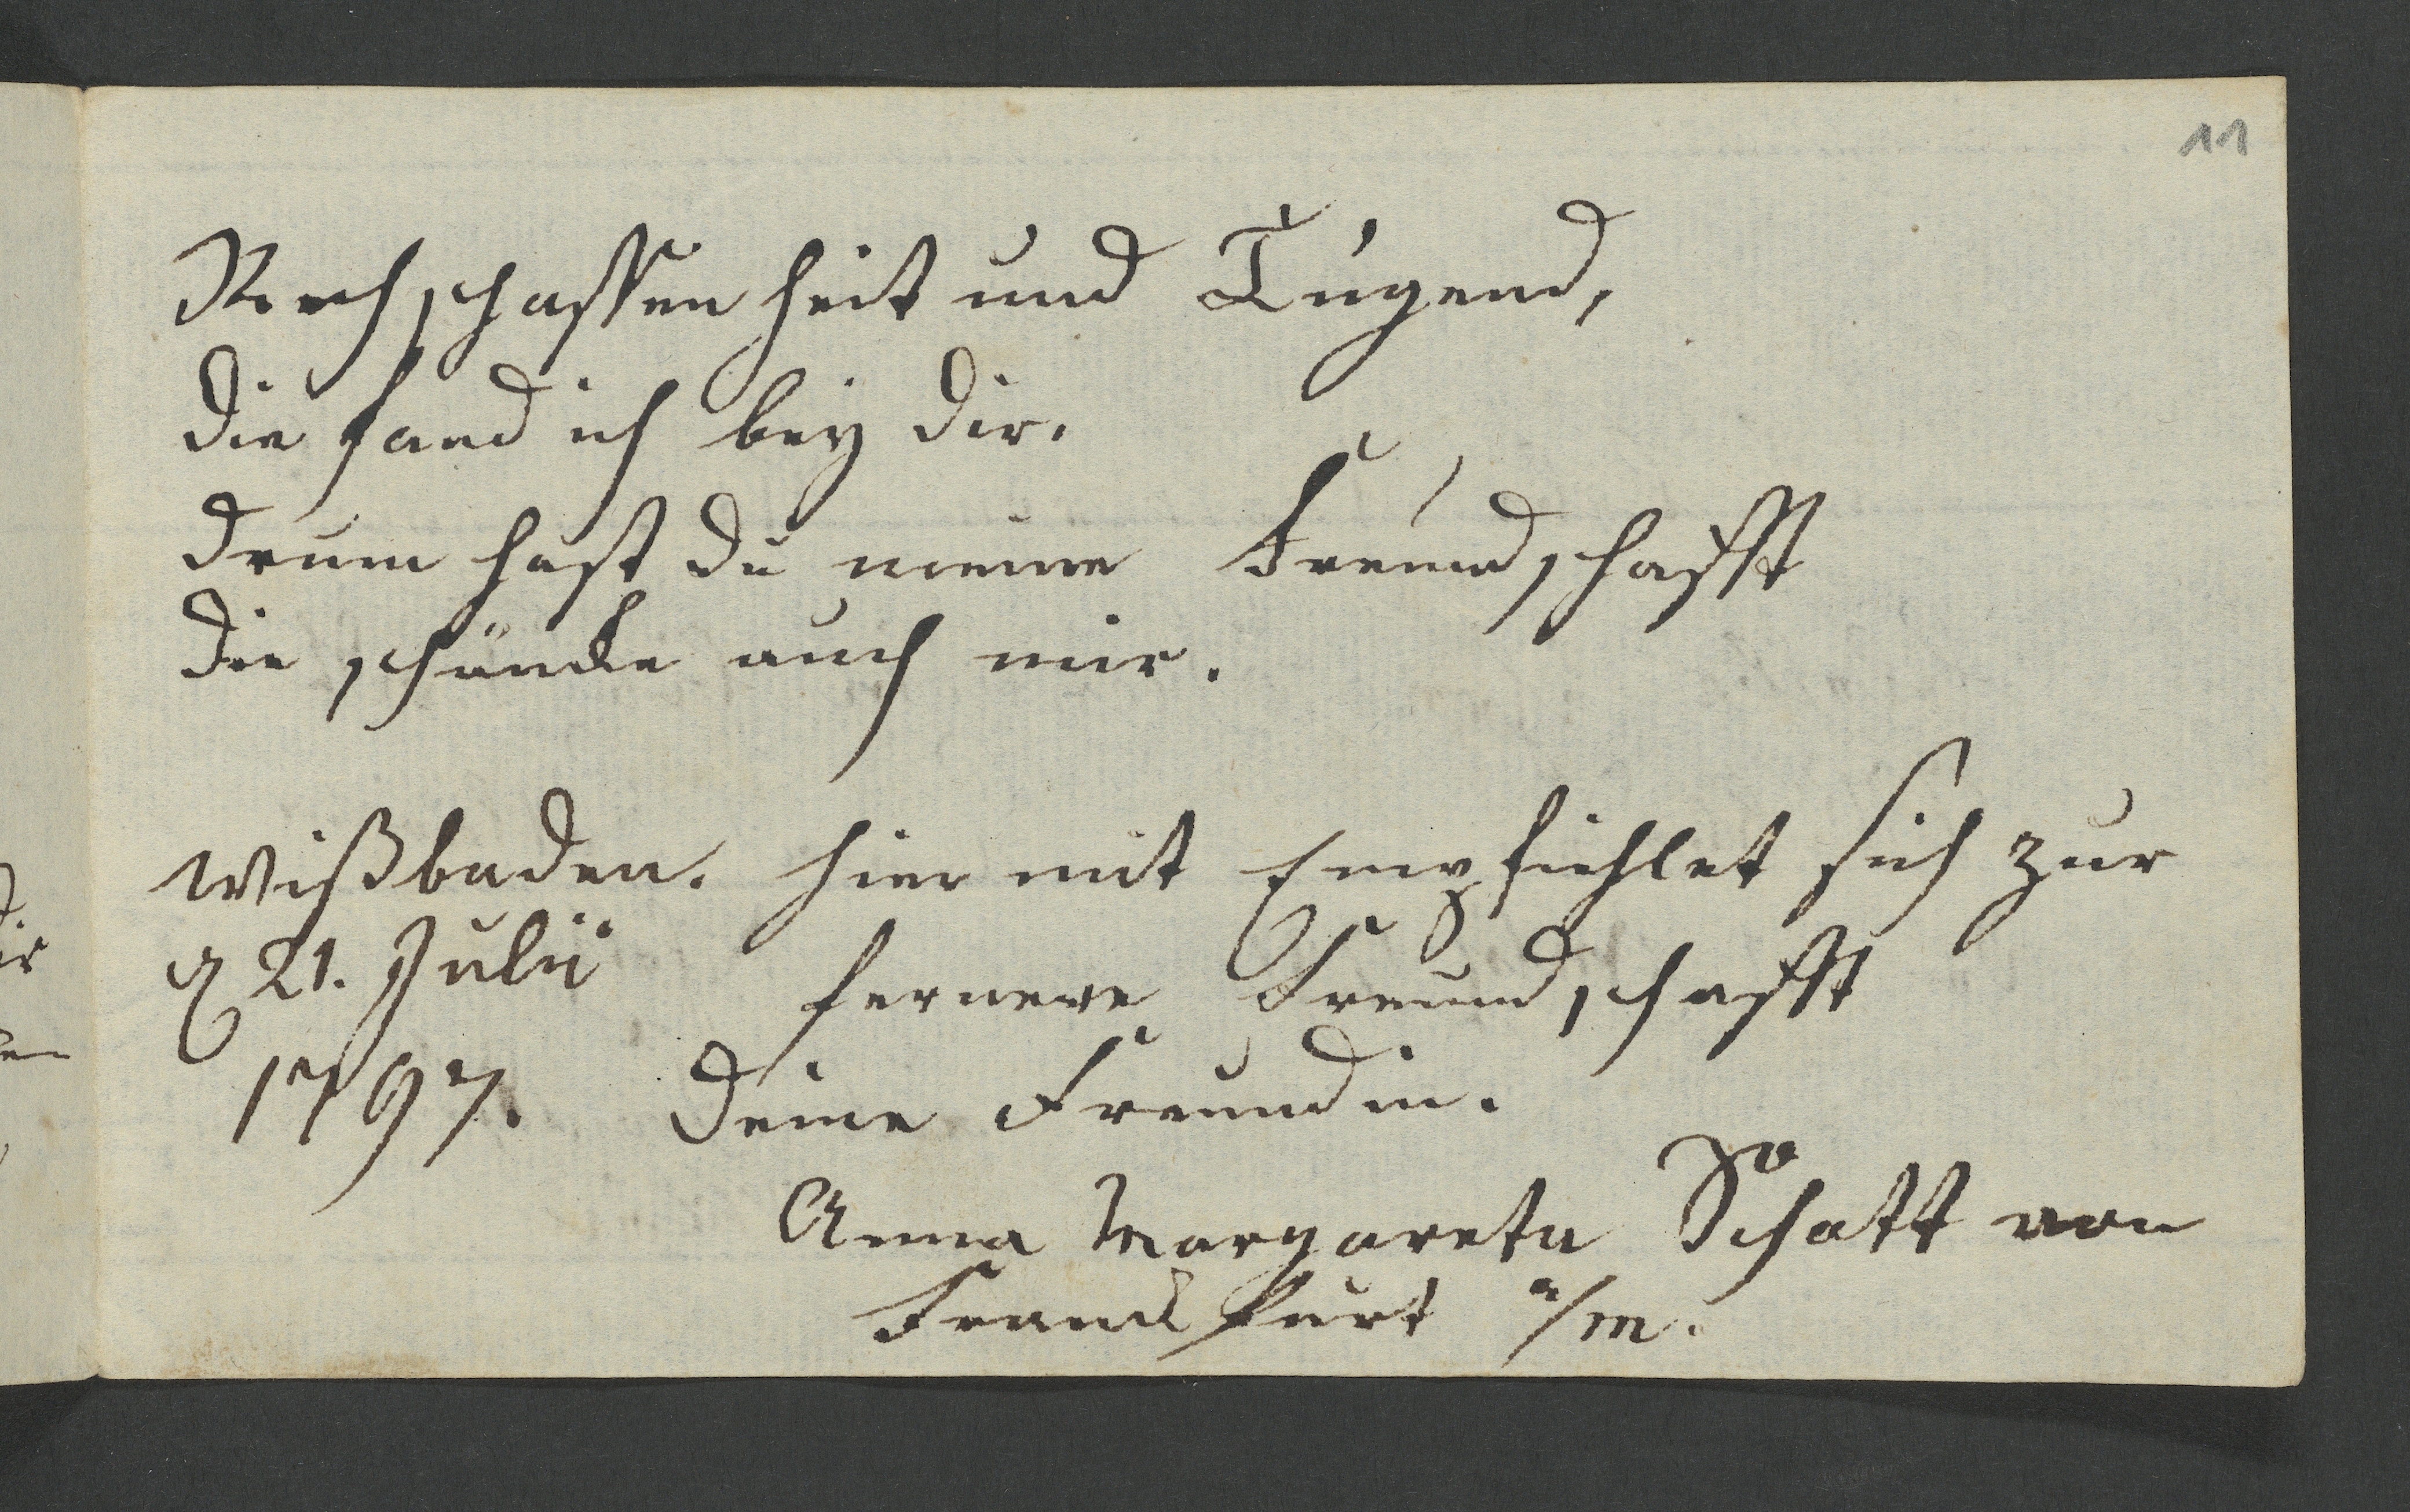 11
Rechschaffenheit und Tugend,
die fand ich bey dir.
drum hast du meine Freundschafft
die schäncke auch mir.
Wißbaden. hier mit Empfiehlet sich zur
d 21. Julii fernere Freundschafft
1797. deine Freundin.
Anna Margareta Schatt von
Franckfurt a/m.